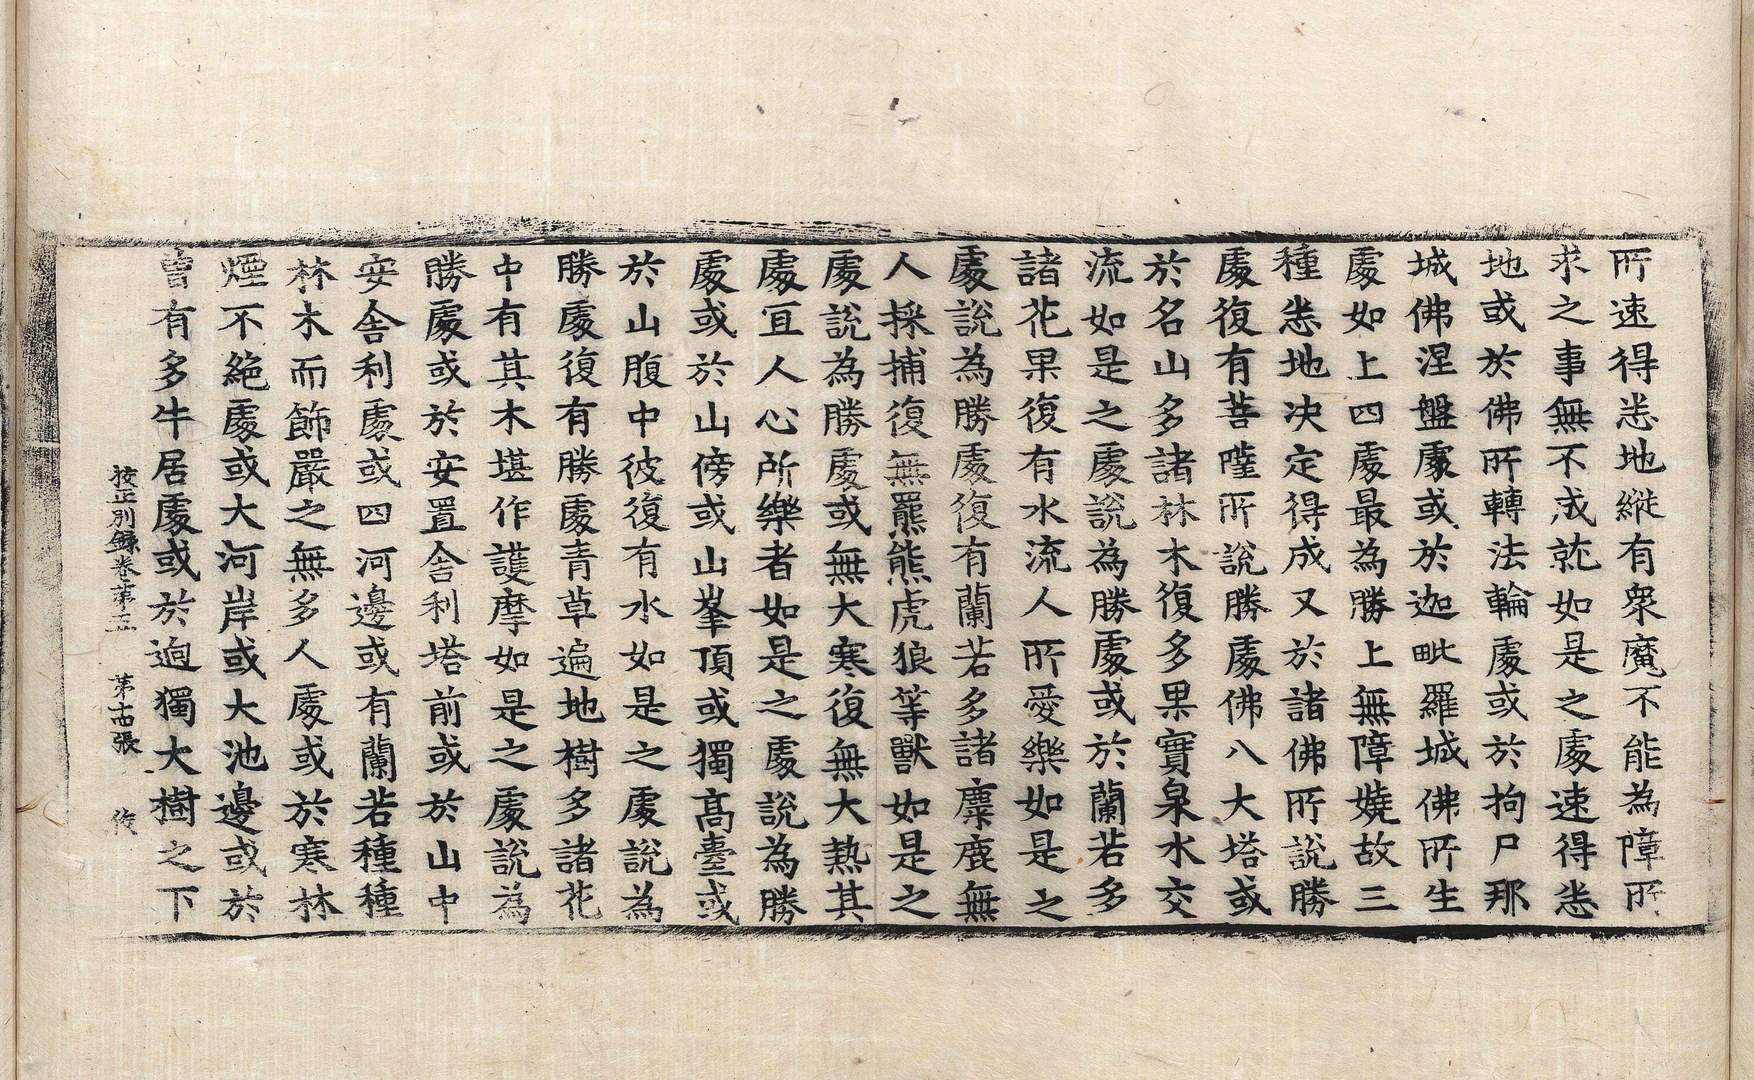 所速得悉地縱有衆魔不能為障所
求之事無不成就如是之處速得悉
地或於佛所轉法輪處或於拘尸那
城佛涅盤處或於迦毗羅城佛所生
處如上四處最為勝上無障嬈故三
種悉地決定得成又於諸佛所說勝
處復有菩薩所說勝處佛八大塔或
於名山多諸林木復多果實泉水交
流如是之處說為勝處或於蘭若多
諸花果復有水流人所愛樂如是之
處說為勝處復有蘭若多諸麋鹿無
人採捕復無羆熊虎狼等獸如是之
處說為勝處或無大寒復無大熱其
處宜人心所樂者如是之處說為勝
處或於山傍或山峯頂或獨髙臺或
於山腹中彼復有水如是之處說為
勝處復有勝處青草遍地樹多諸花
中有其木堪作護摩如是之處說為
勝處或於安置舍利塔前或於山中
安舍利處或四河邊或有蘭若種種
林木而飾嚴之無多人處或於寒林
煙不絕處或大河岸或大池邊或於
曾有多牛居處或於逈獨大樹之下
挍正別錄卷第五 第十四張 俊